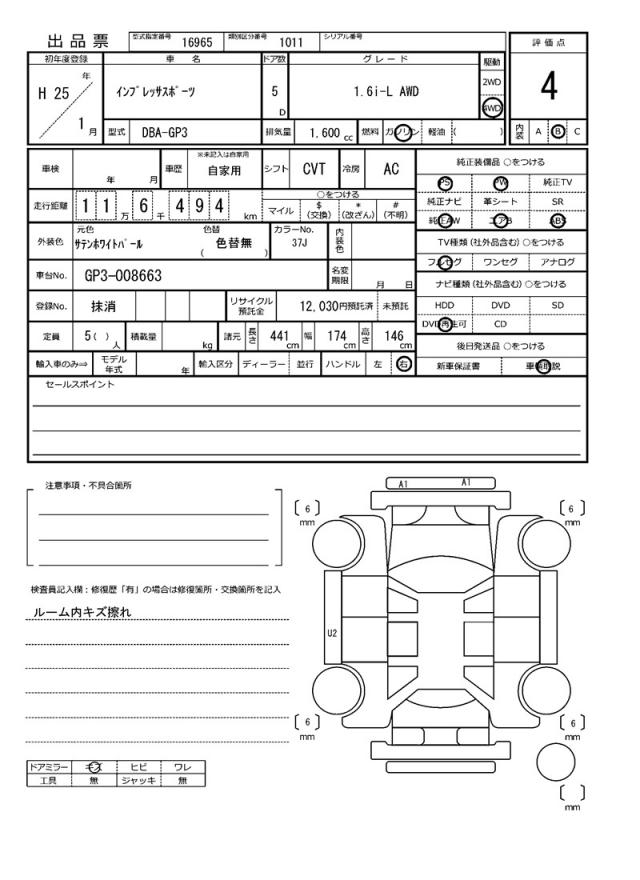 出品票
型式指定番号 16965 類別区分番号 1011 シリアル番号
評価点
4
初年度登録 車名 ドア数 グレード 駆動
H 25 年 1 月
インプレッサスポーツ 5 D 1.6i-L AWD 2WD 4WD
型式 DBA-GP3 排気量 1,600 cc 燃料 ガソリン 軽油 ( ) 内装 A B C
車検 年 月 車歴 ※未記入は自家用 自家用 シフト CVT 冷房 AC
走行距離 11万6千494 km
○をつける
マイル $(交換) *(改ざん) #(不明)
外装色 元色 サテンホワイトパール 色替 ( 色替無 ) カラーNo. 37J 内装色
車台No. GP3-008663 名変期限 月 日
登録No. 抹消 リサイクル預託金 12,030円預託済 未預託
定員 5( )人 積載量 kg 諸元 長さ 441 cm 幅 174 cm 高さ 146 cm
輸入車のみ⇒ モデル年式 年 輸入区分 ディーラー 並行 ハンドル 左 右
純正装備品 ○をつける
PS PW 純正TV
純正ナビ 革シート SR
純正AW エアB ABS
TV種類(社外品含む)○をつける
フルセグ ワンセグ アナログ
ナビ種類(社外品含む)○をつける
HDD DVD SD
DVD再生可 CD
後日発送品 ○をつける
新車保証書 車輌取説
セールスポイント
注意事項・不具合箇所
検査員記入欄:修復歴「有」の場合は修復箇所・交換箇所を記入
ルーム内キズ擦れ
ドアミラー キズ ヒビ ワレ
工具 無 ジャッキ 無
A1 A1
〔 6 〕mm 〔 6 〕mm
U2
〔 6 〕mm 〔 6 〕mm
〔 〕mm